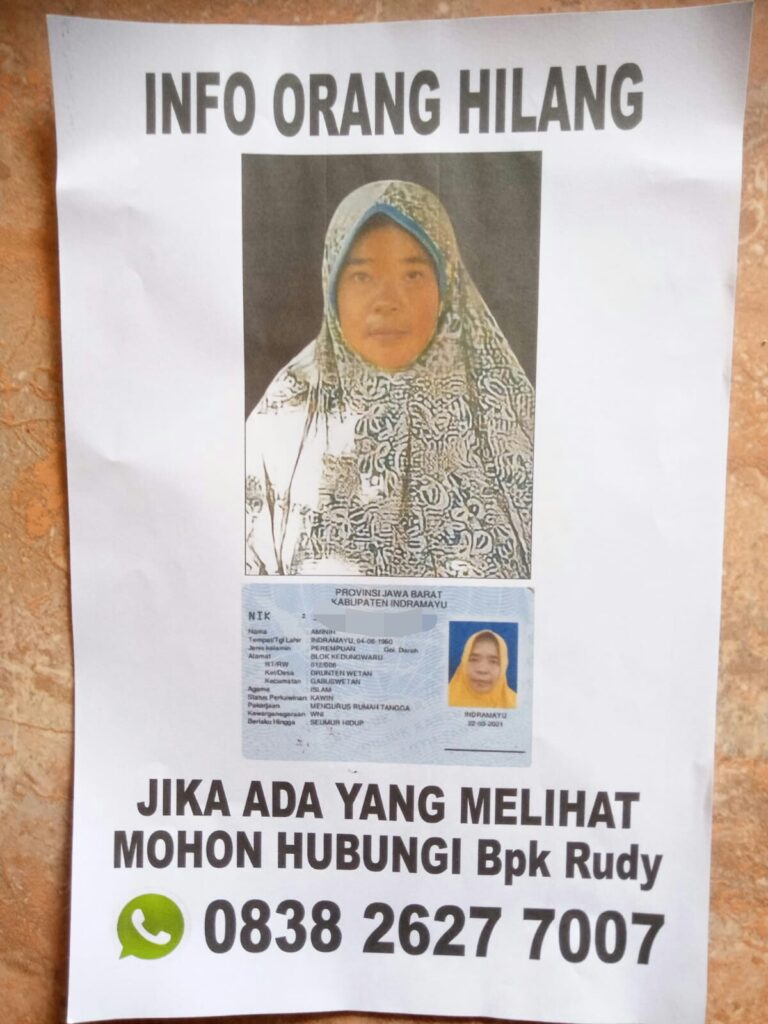 INFO ORANG HILANG
PROVINSI JAWA BARAT
KABUPATEN INDRAMAYU
NIK :
Nama : AMINIH
Tempat/Tgl Lahir : INDRAMAYU, 04-06-1960
Jenis kelamin : PEREMPUAN Gol. Darah
Alamat : BLOK KEDUNGWARU
RT/RW : 012/006
Kel/Desa : DRUNTEN WETAN
Kecamatan : GABUSWETAN
Agama : ISLAM
Status Perkawinan: KAWIN
Pekerjaan : MENGURUS RUMAH TANGGA
Kewarganegaraan: WNI
Berlaku Hingga : SEUMUR HIDUP
INDRAMAYU
JIKA ADA YANG MELIHAT
MOHON HUBUNGI Bpk Rudy
0838 2627 7007